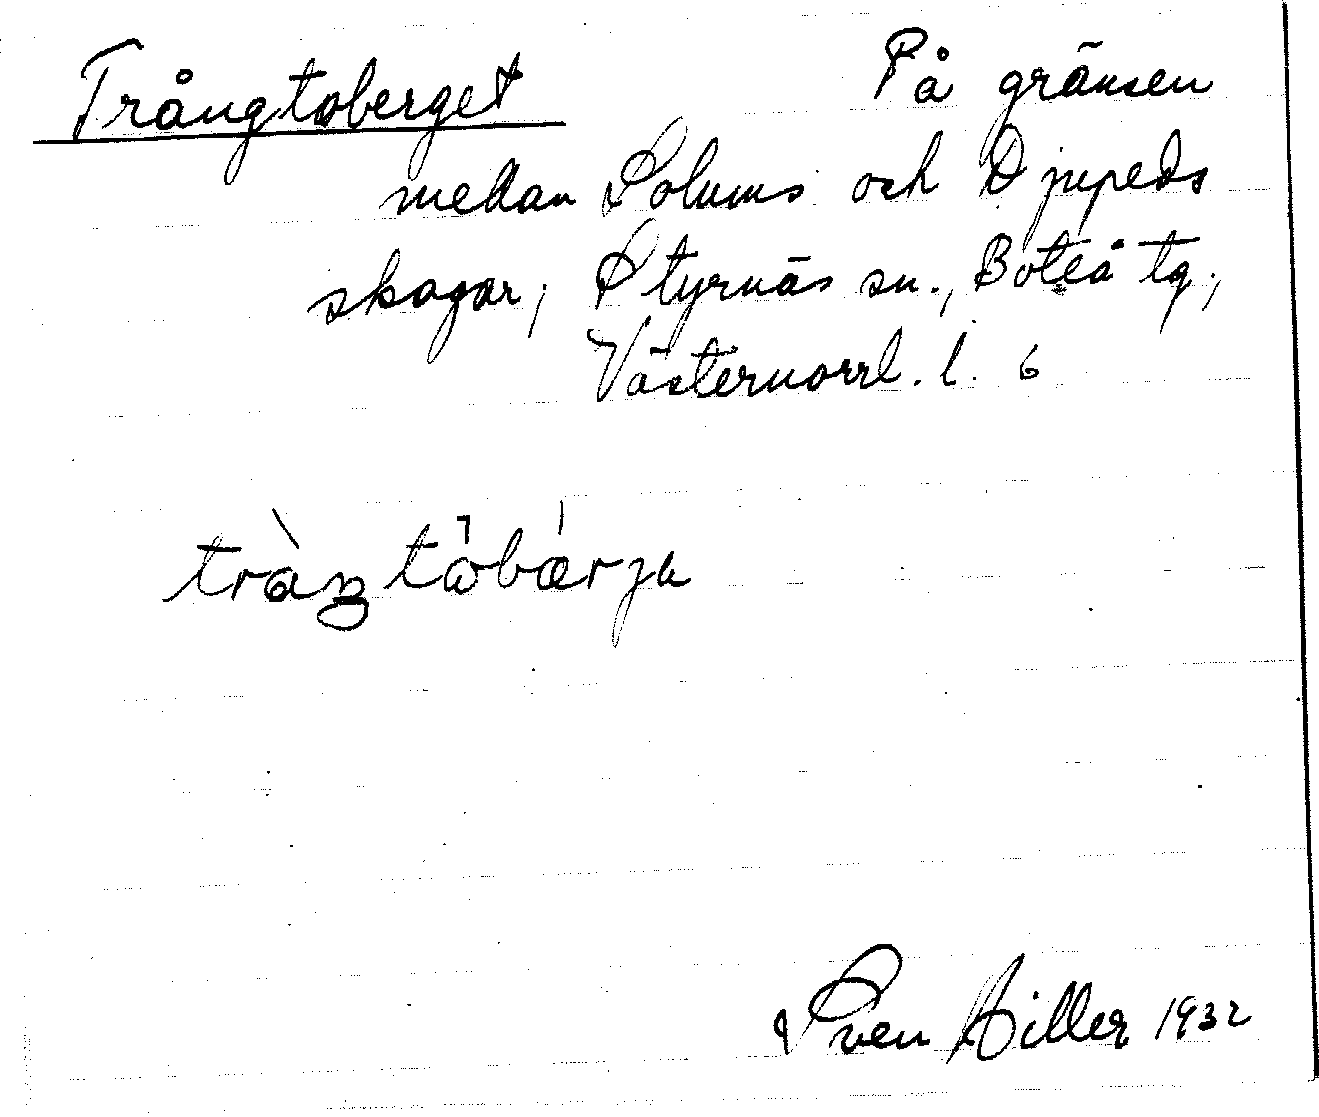 Trångtoberget På gränsen
mellan Solums och Djupeds
skogar, Styrnäs sn., Boteå tg,
Västernorrl. l. 6
Sven Hiller 1932